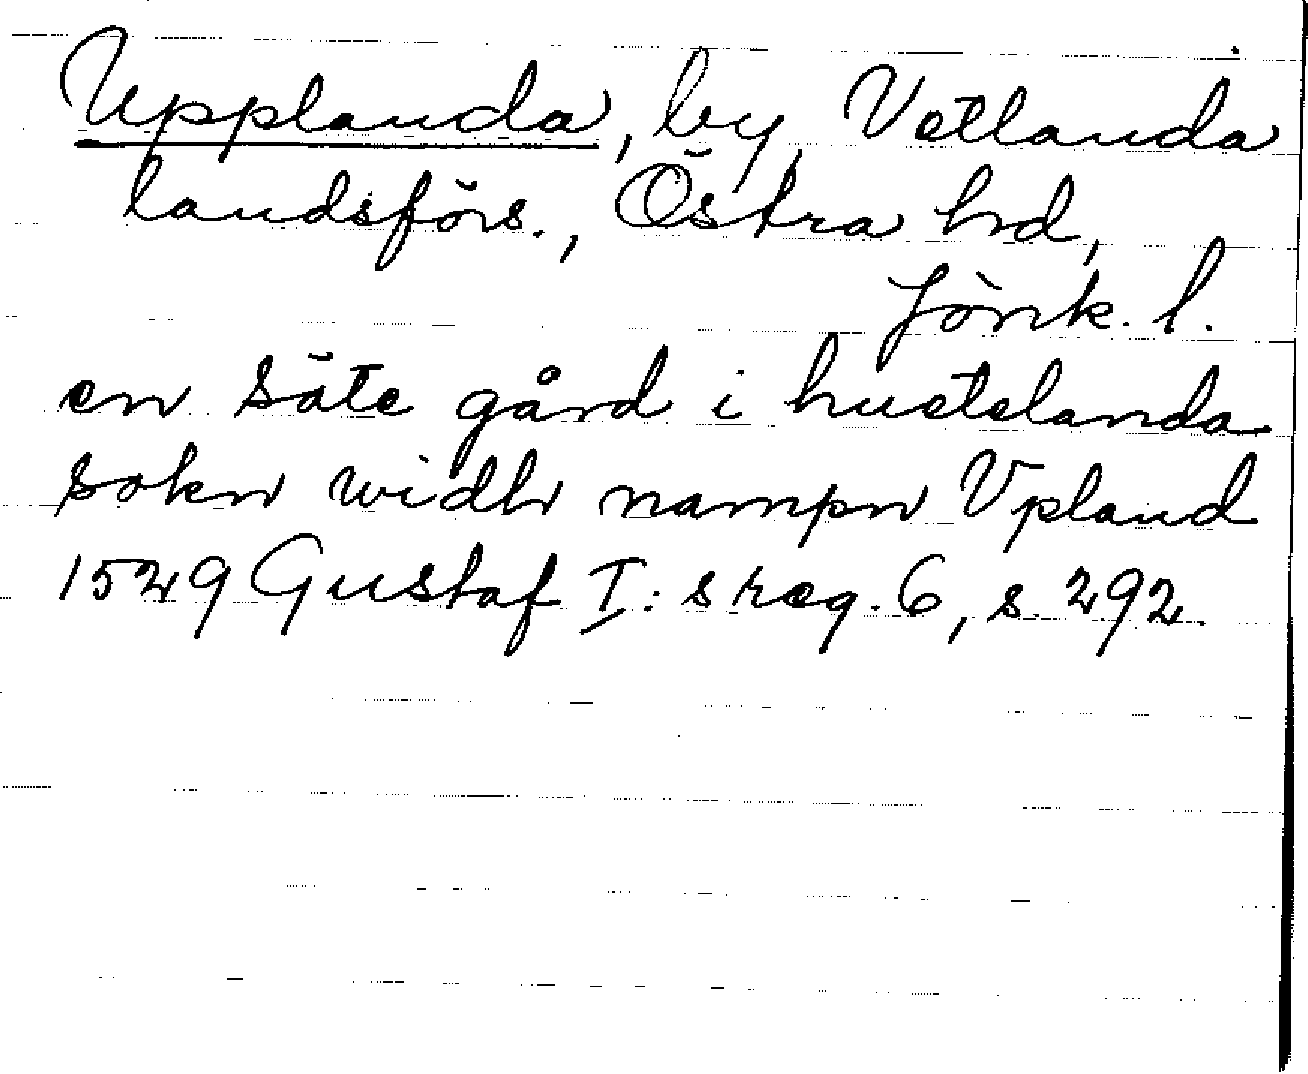 Upplanda, by, Vetlanda
landsförs., Östra hd,
Jönk. l.
en säte gård i huetelanda
sokn widh nampn Vpland
1529 Gustaf I:s reg. 6, s. 292.